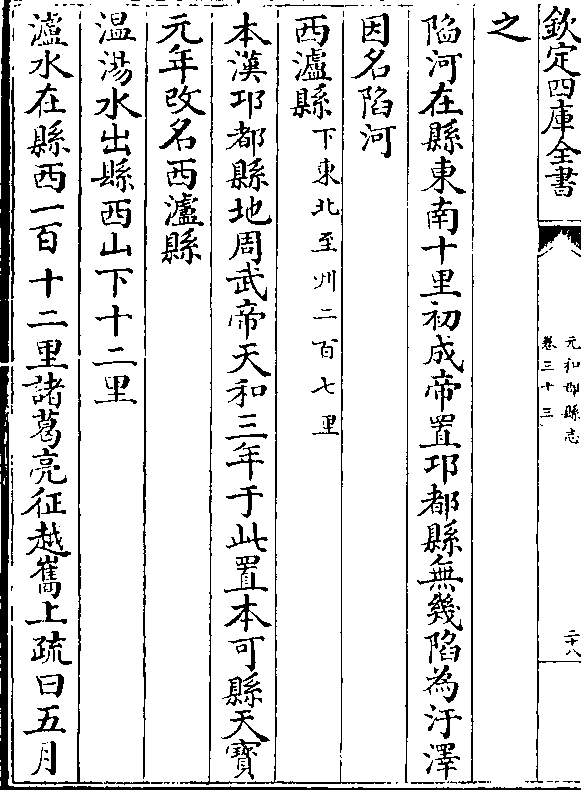 欽定四庫全書
元和郡縣志
卷三十三
二十八
之
陷河在縣東南十里初成帝置邛都縣無幾陷為汙澤
因名陷河
西瀘縣下東北至州二百七里
本漢邛都縣地周武帝天和三年于此置本可縣天寶
元年改名西瀘縣
温湯水出縣西山下十二里
瀘水在縣西一百十二里諸葛亮征越巂上疏曰五月